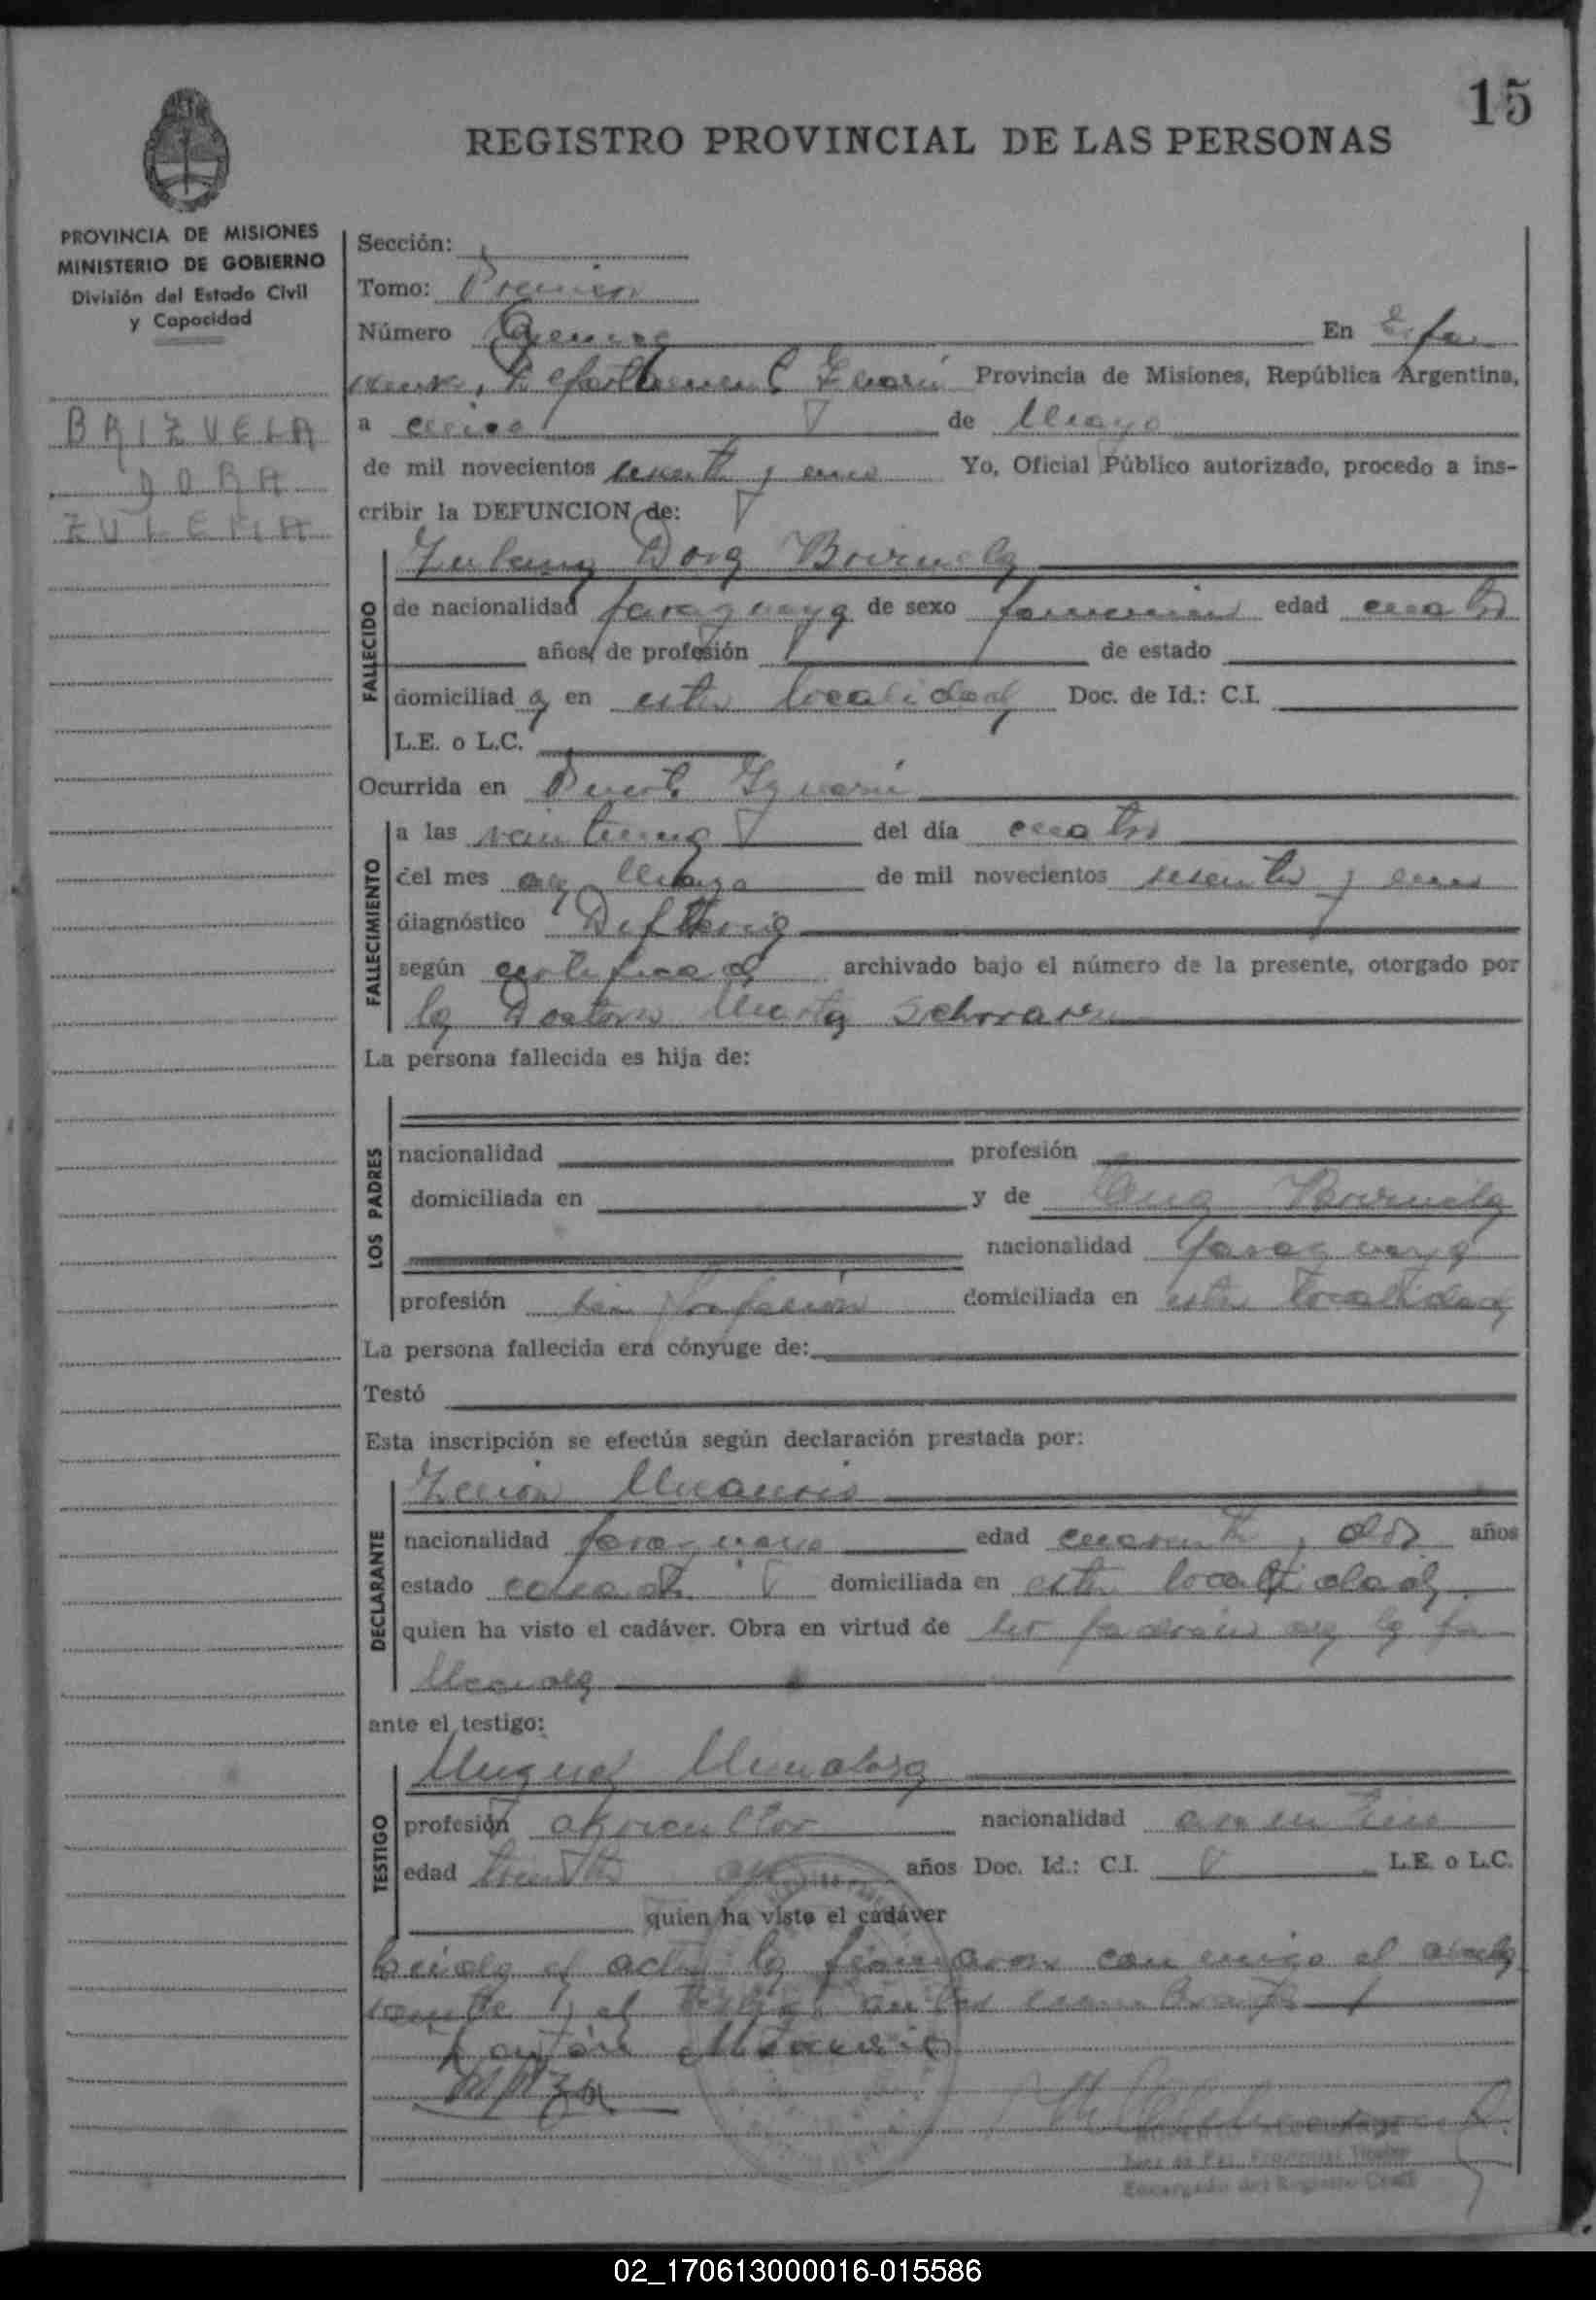 15
REGISTRO PROVINCIAL DE LAS PERSONAS
PROVINCIA DE MISIONES
MINISTERIO DE GOBIERNO
División del Estado Civil
y Capacidad
BRIZUELA
DORA
ZULEMA
Sección:
Tomo: Primero
Número Quince En Espe
ranza, Departamento Iguazú Provincia de Misiones, República Argentina,
a cinco de Mayo
de mil novecientos sesenta y uno Yo, Oficial Público autorizado, procedo a ins-
cribir la DEFUNCION de:
Zulema Dora Brizuela
FALLECIDO
de nacionalidad paraguaya de sexo femenino edad cuatro
años, de profesión de estado
domiciliad a en esta localidad Doc. de Id.: C.I.
L.E. o L.C.
Ocurrida en Puerto Iguazú
FALLECIMIENTO
a las veintiuna del día cuatro
del mes de Mayo de mil novecientos sesenta y uno
diagnóstico Difteria
según certificado archivado bajo el número de la presente, otorgado por
la Doctora Marta
La persona fallecida es hija de:
LOS PADRES
nacionalidad profesión
domiciliada en y de Brizuela
nacionalidad paraguaya
profesión sin profesión domiciliada en esta localidad
La persona fallecida era cónyuge de:
Testó
Esta inscripción se efectúa según declaración prestada por:
DECLARANTE
nacionalidad paraguayo edad cuarenta y dos años
estado casado domiciliada en esta localidad
quien ha visto el cadáver. Obra en virtud de ser padrino de la fa
ante el testigo:
Miguel
TESTIGO
profesión agricultor nacionalidad argentino
edad treinta años Doc. Id.: C.I. L.E. o L.C.
quien ha visto el cadáver
Leída el acta la firmaron conmigo el decla
rante y el testigo antes nombrado
Juez de Paz Provincial Titular
Encargado del Registro Civil
02_170613000016-015586